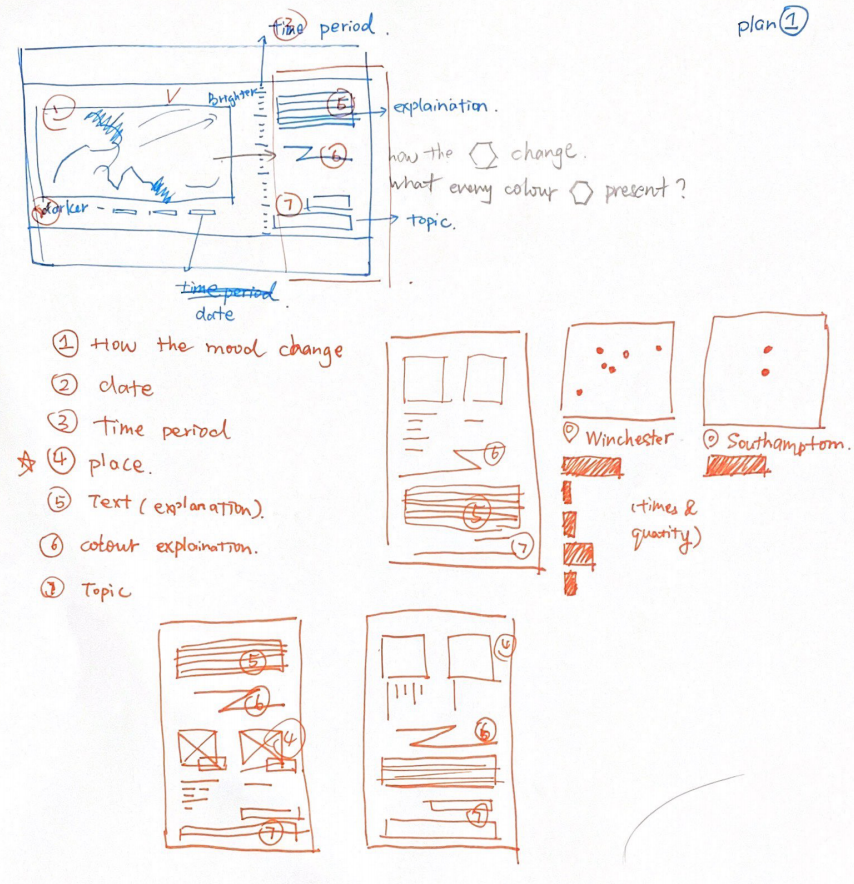 time period.
plan ①
①
Brighter
⑤
explaination.
⑥
how the ⬡ change.
what every colour ⬡ present?
⑦
Darker
topic.
time period
date
① How the mood change
② date
③ time period
☆ ④ place.
⑤ Text (explanation).
⑥ colour explaination.
⑦ Topic
⑥
⑤
⑦
Winchester
Southamptom.
(times &
quantity)
⑤
⑥
④
⑦
④
⑥
⑦